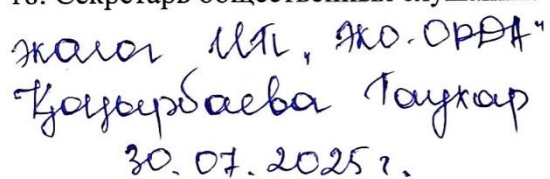 18. Секретарь общественных слушаний
эколог ИП "ЭКО-ОРДА"
Қадырбаева Гаухар
30.07.2025 г.